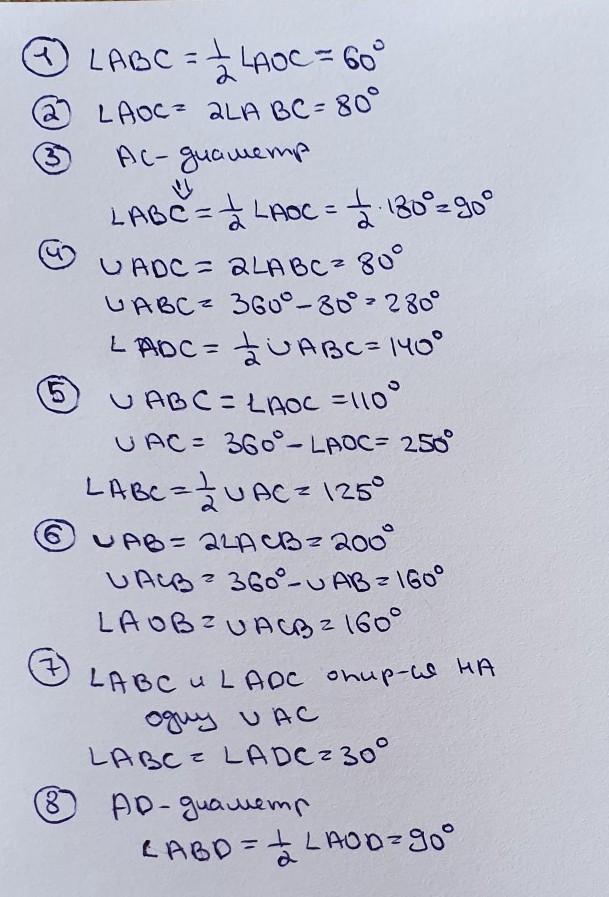 ① ∠ABC = 1/2 ∠AOC = 60°
② ∠AOC = 2∠ABC = 80°
③ AC - диаметр
⇓
∠ABC = 1/2 ∠AOC = 1/2 · 180° = 90°
④ ∪ADC = 2∠ABC = 80°
∪ABC = 360° - 80° = 280°
∠ADC = 1/2 ∪ABC = 140°
⑤ ∪ABC = ∠AOC = 110°
∪AC = 360° - ∠AOC = 250°
∠ABC = 1/2 ∪AC = 125°
⑥ ∪AB = 2∠ACB = 200°
∪ACB = 360° - ∪AB = 160°
∠AOB = ∪ACB = 160°
⑦ ∠ABC и ∠ADC опир-ся на
одну ∪AC
∠ABC = ∠ADC = 30°
⑧ AD - диаметр
∠ABD = 1/2 ∠AOD = 90°